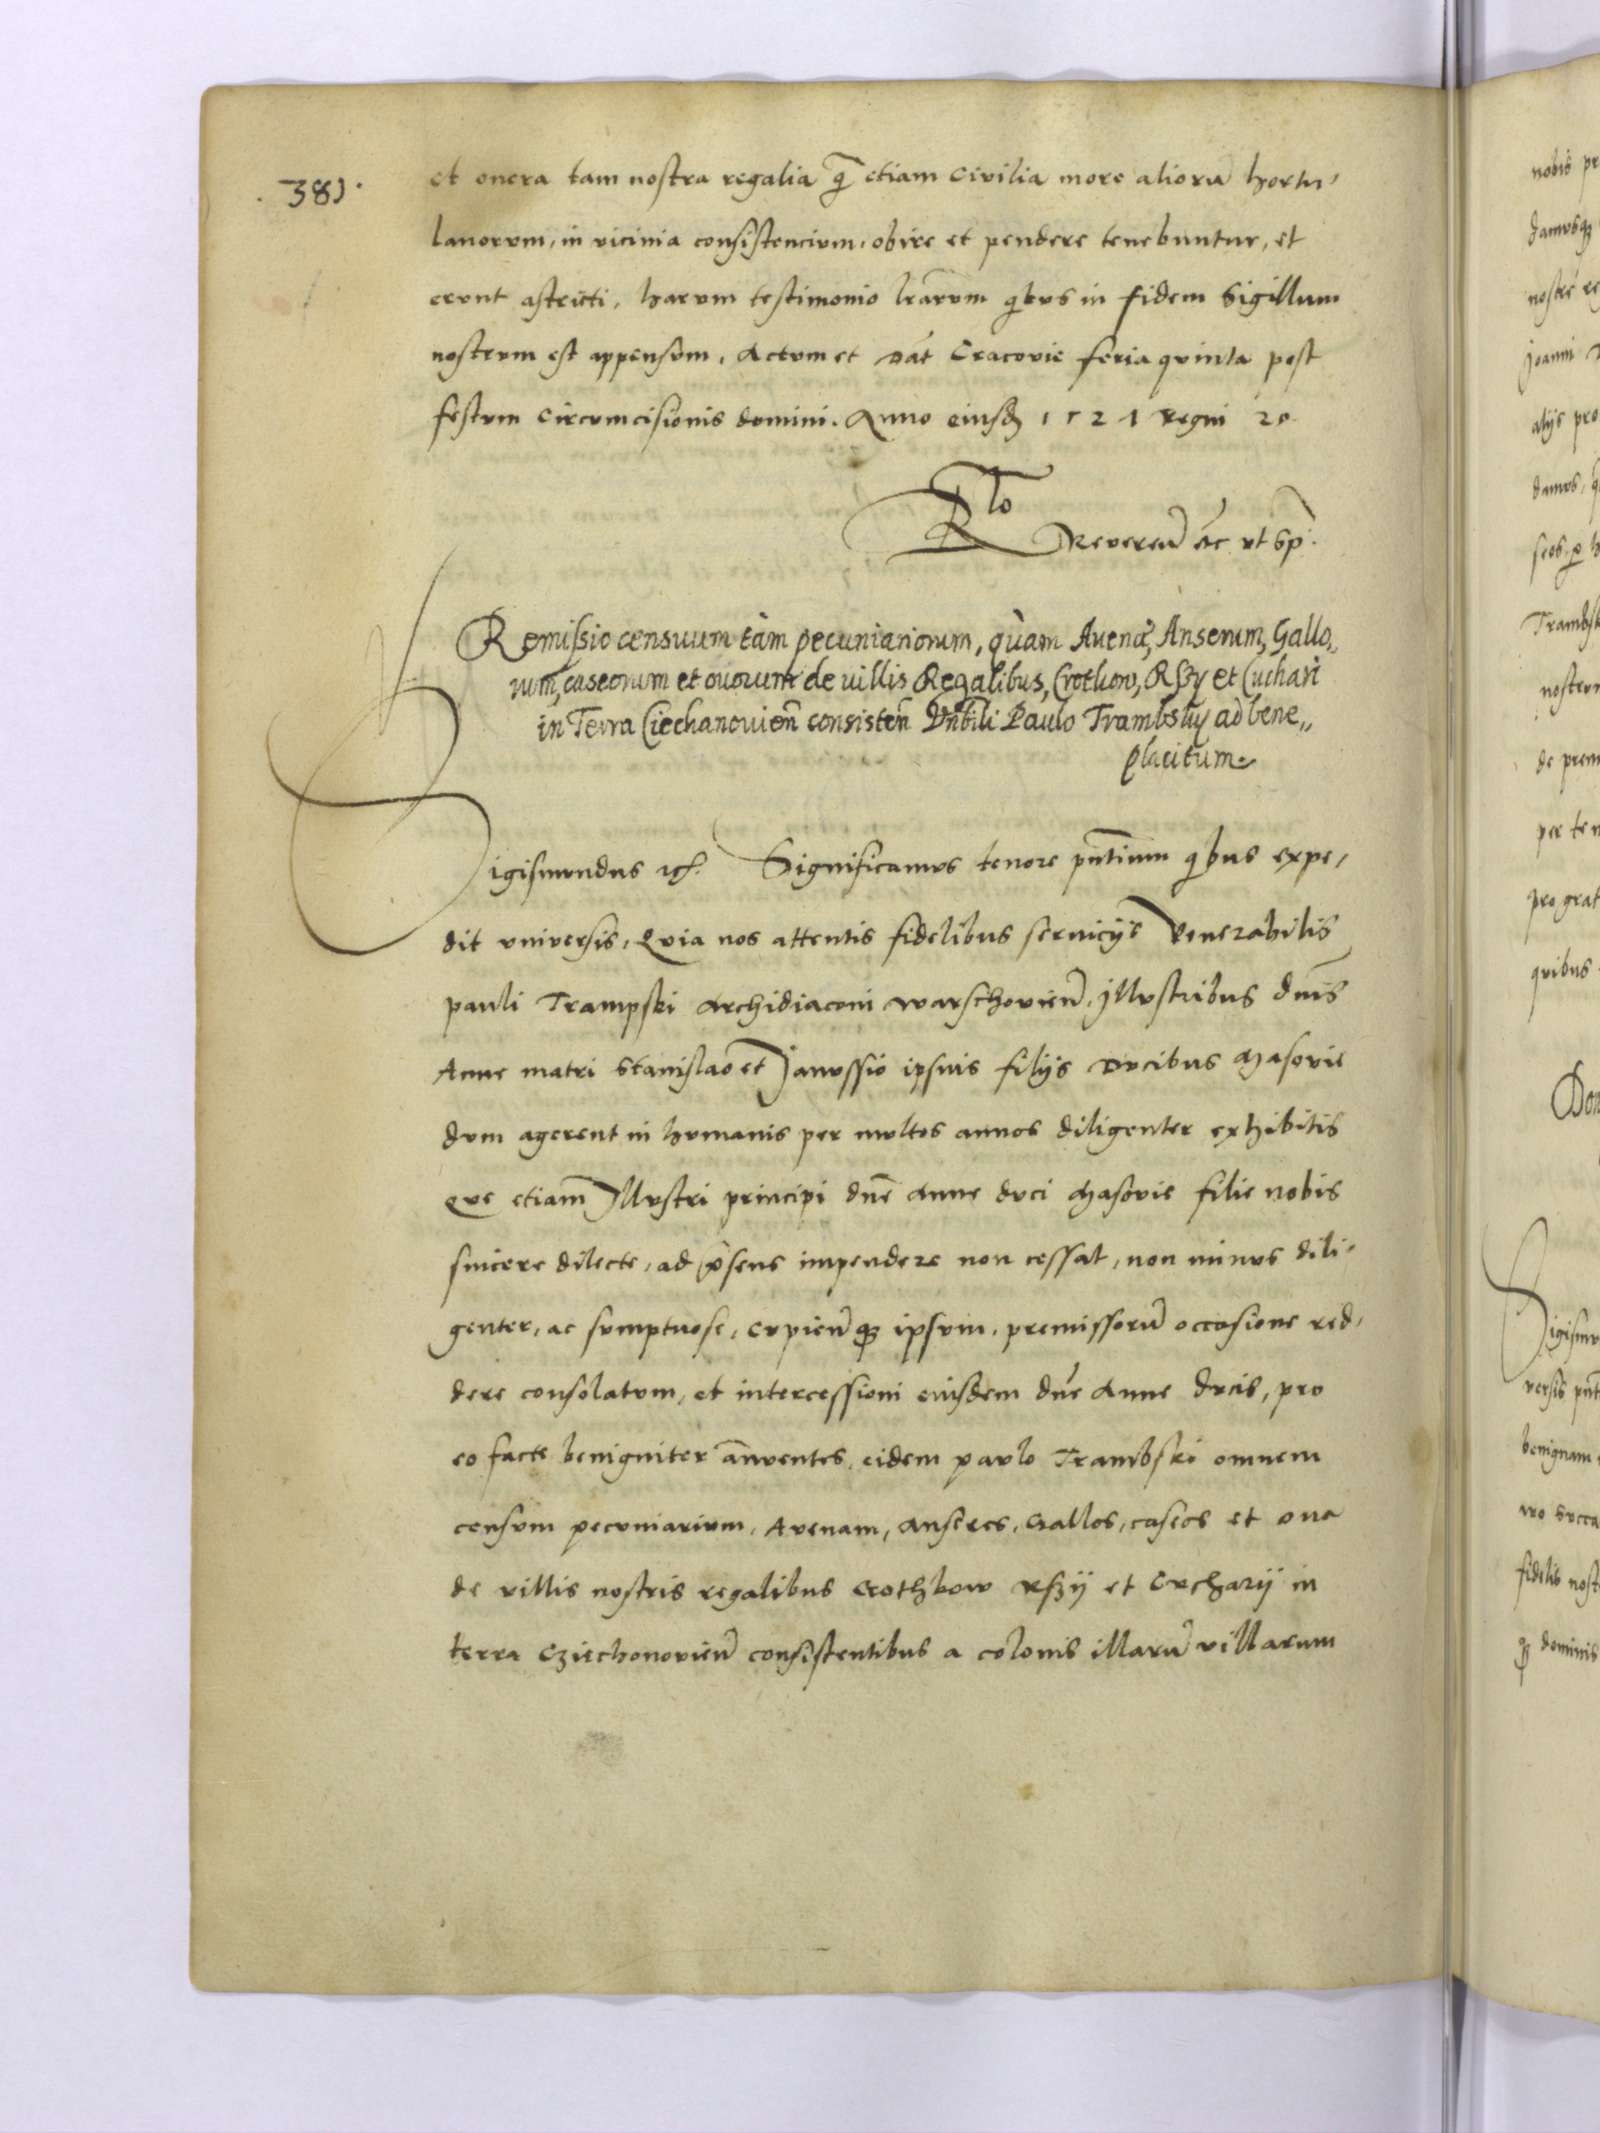 381.
et onera tam nostra regalia q̃ etiam civilia more aliorũ hortu,
lanorum, in vicinia consistencium, obire et pendere tenebuntur, et
erunt astricti, harum testimonio lrãrum qbus in fidem Sigillum
nostrum est appensum, Actum et Dat Cracovie feria quinta post
festum Circumcisionis domini. Anno eiusd 1521 Regni 20
Rlo
Reveren̄ &c ut sp̄.
Remissio censuum tàm pecuniariorum, quàm Avenæ, Anserum, Gallo,,
rum, caseorum et ovorum de villis Regalibus, Crotkow, Rszy et Cuchari
in Terra Ciechanovien̄ consisten̄ Vn̄bili Paulo Trambsky ad bene,,
placitum.
Sigismundus &c. Significamus tenore pn̄tium qbus expe,
dit universis, Quia nos attentis fidelibus serviciis Venerabilis
pauli Trampski Archidiaconi Warschovien̄, Illustribus dn̄is
Anne matri Stanislao et Janussio ipsius filijs Ducibus Masovie
dum agerent in humanis per multos annos diligenter exhibitis
Que etiam Illustri principi dn̄e Anne duci Masovie filie nobis
sincere dilecte, ad p̄sens impendere non cessat, non minus dili-
genter, ac sumptuose, cupien̄q ipsum, premissorũ occasione red,
dere consolatum, et intercessioni eiusdem dn̄e Anne ducis, pro
eo facte benigniter an̄uentes, eidem paulo Trambski omnem
censum pecuniarium, Avenam, Anseres, Gallos, caseos et ova
de villis nostris regalibus Crothkow Rszij et Cucharij in
terra Cziechonovien̄ consistentibus a colonis illarũ villarum